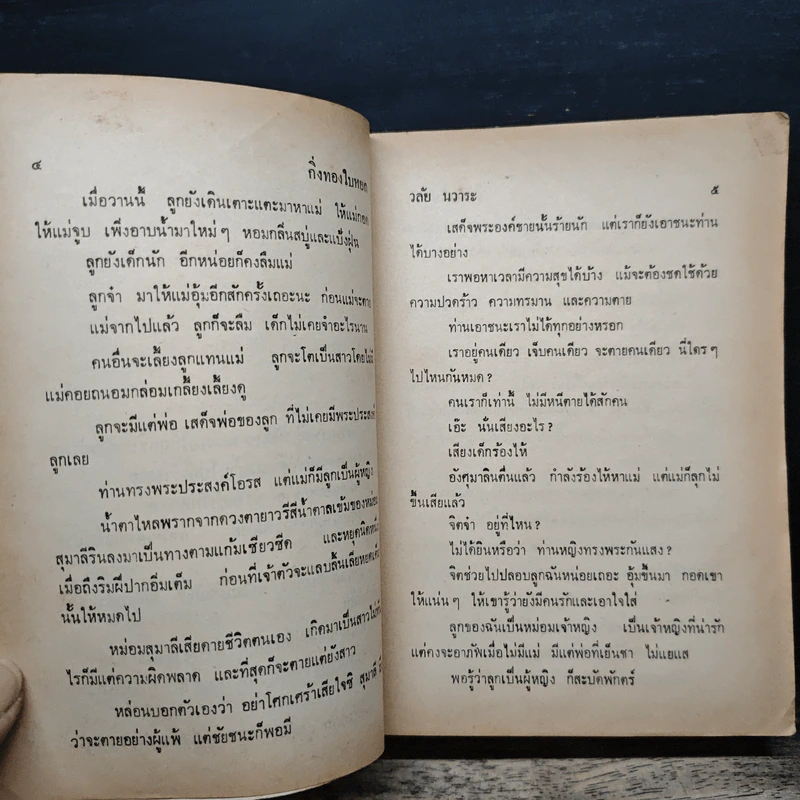 ๔
กิ่งทองใบหยก
เมื่อวานนี้ ลูกยังเดินเตาะแตะมาหาแม่ ให้แม่กอด
ให้แม่จูบ เพิ่งอาบน้ำมาใหม่ๆ หอมกลิ่นสบู่และแป้งฝุ่น
ลูกยังเด็กนัก อีกหน่อยก็คงลืมแม่
ลูกจ๋า มาให้แม่อุ้มอีกสักครั้งเถอะนะ ก่อนแม่จะตาย
แม่จากไปแล้ว ลูกก็จะลืม เด็กไม่เคยจำอะไรนาน
คนอื่นจะเลี้ยงลูกแทนแม่ ลูกจะโตเป็นสาวโดยไม่มี
แม่คอยถนอมกล่อมเกลี้ยงเลี้ยงดู
ลูกจะมีแต่พ่อ เสด็จพ่อของลูก ที่ไม่เคยมีพระประสงค์
ลูกเลย
ท่านทรงพระประสงค์โอรส แต่แม่ก็มีลูกเป็นผู้หญิง
น้ำตาไหลพรากจากดวงตายาวรีสีน้ำตาลเข้มของหม่อม
สุมาลีรินลงมาเป็นทางตามแก้มเซียวซีด และหยุดนิดหนึ่ง
เมื่อถึงริมฝีปากอิ่มเต็ม ก่อนที่เจ้าตัวจะแลบลิ้นเลียหยดเค็ม
นั้นให้หมดไป
หม่อมสุมาลีเสียดายชีวิตตนเอง เกิดมาเป็นสาวไม่ทัน
ไรก็มีแต่ความผิดพลาด และที่สุดก็จะตายแต่ยังสาว
หล่อนบอกตัวเองว่า อย่าโศกเศร้าเสียใจซิ สุมาลี
ว่าจะตายอย่างผู้แพ้ แต่ชัยชนะก็พอมี
วลัย นวาระ
๕
เสด็จพระองค์ชายนั้นร้ายนัก แต่เราก็ยังเอาชนะท่าน
ได้บางอย่าง
เราพอหาเวลามีความสุขได้บ้าง แม้จะต้องชดใช้ด้วย
ความปวดร้าว ความทรมาน และความตาย
ท่านเอาชนะเราไม่ได้ทุกอย่างหรอก
เราอยู่คนเดียว เจ็บคนเดียว จะตายคนเดียว นี่ใครๆ
ไปไหนกันหมด?
คนเราก็เท่านี้ ไม่มีหนีตายได้สักคน
เอ๊ะ นั่นเสียงอะไร?
เสียงเด็กร้องไห้
อังศุมาลินตื่นแล้ว กำลังร้องไห้หาแม่ แต่แม่ก็ลุกไม่
ขึ้นเสียแล้ว
จิตจ๋า อยู่ที่ไหน?
ไม่ได้ยินหรือว่า ท่านหญิงทรงพระกันแสง?
จิตช่วยไปปลอบลูกฉันหน่อยเถอะ อุ้มขึ้นมา กอดเขา
ให้แน่นๆ ให้เขารู้ว่ายังมีคนรักและเอาใจใส่
ลูกของฉันเป็นหม่อมเจ้าหญิง เป็นเจ้าหญิงที่น่ารัก
แต่คงจะอาภัพเมื่อไม่มีแม่ มีแต่พ่อที่เย็นชา ไม่แยแส
พอรู้ว่าลูกเป็นผู้หญิง ก็สะบัดพักตร์